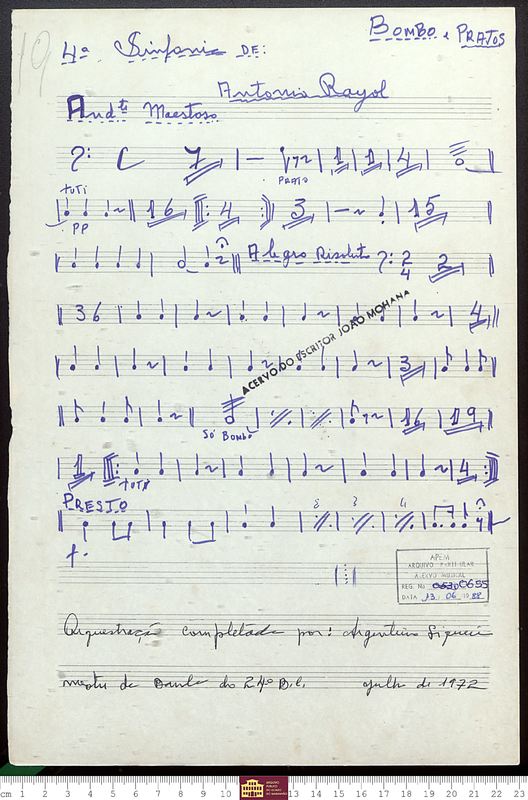 19
BOMBO e PRATOS
4ª Sinfonia DE:
Antonio Rayol
Andte Maestoso
C 7 1 1 4
PRATO
TUTI
PP 16 4 3 15
2 Alegro Risoluto 2/4 2
36 4
ACERVO DO ESCRITOR JOÃO MOHANA
3
16 19
SÓ BOMBO
1 4
TUTTI
PRESTO
2 3 4
f.
APEM
ARQUIVO PARTICULAR
ACERVO MUSICAL
REG. Nº 0655
DATA 13. 06. 1988
Orquestração completada por: Argentino
mestre de Banda do 24º B.C. julho de 1972
cm 1 2 3 4 5 6 7 8 9 10 11 12 13 14 15 16 17 18 19 20 21 22 23